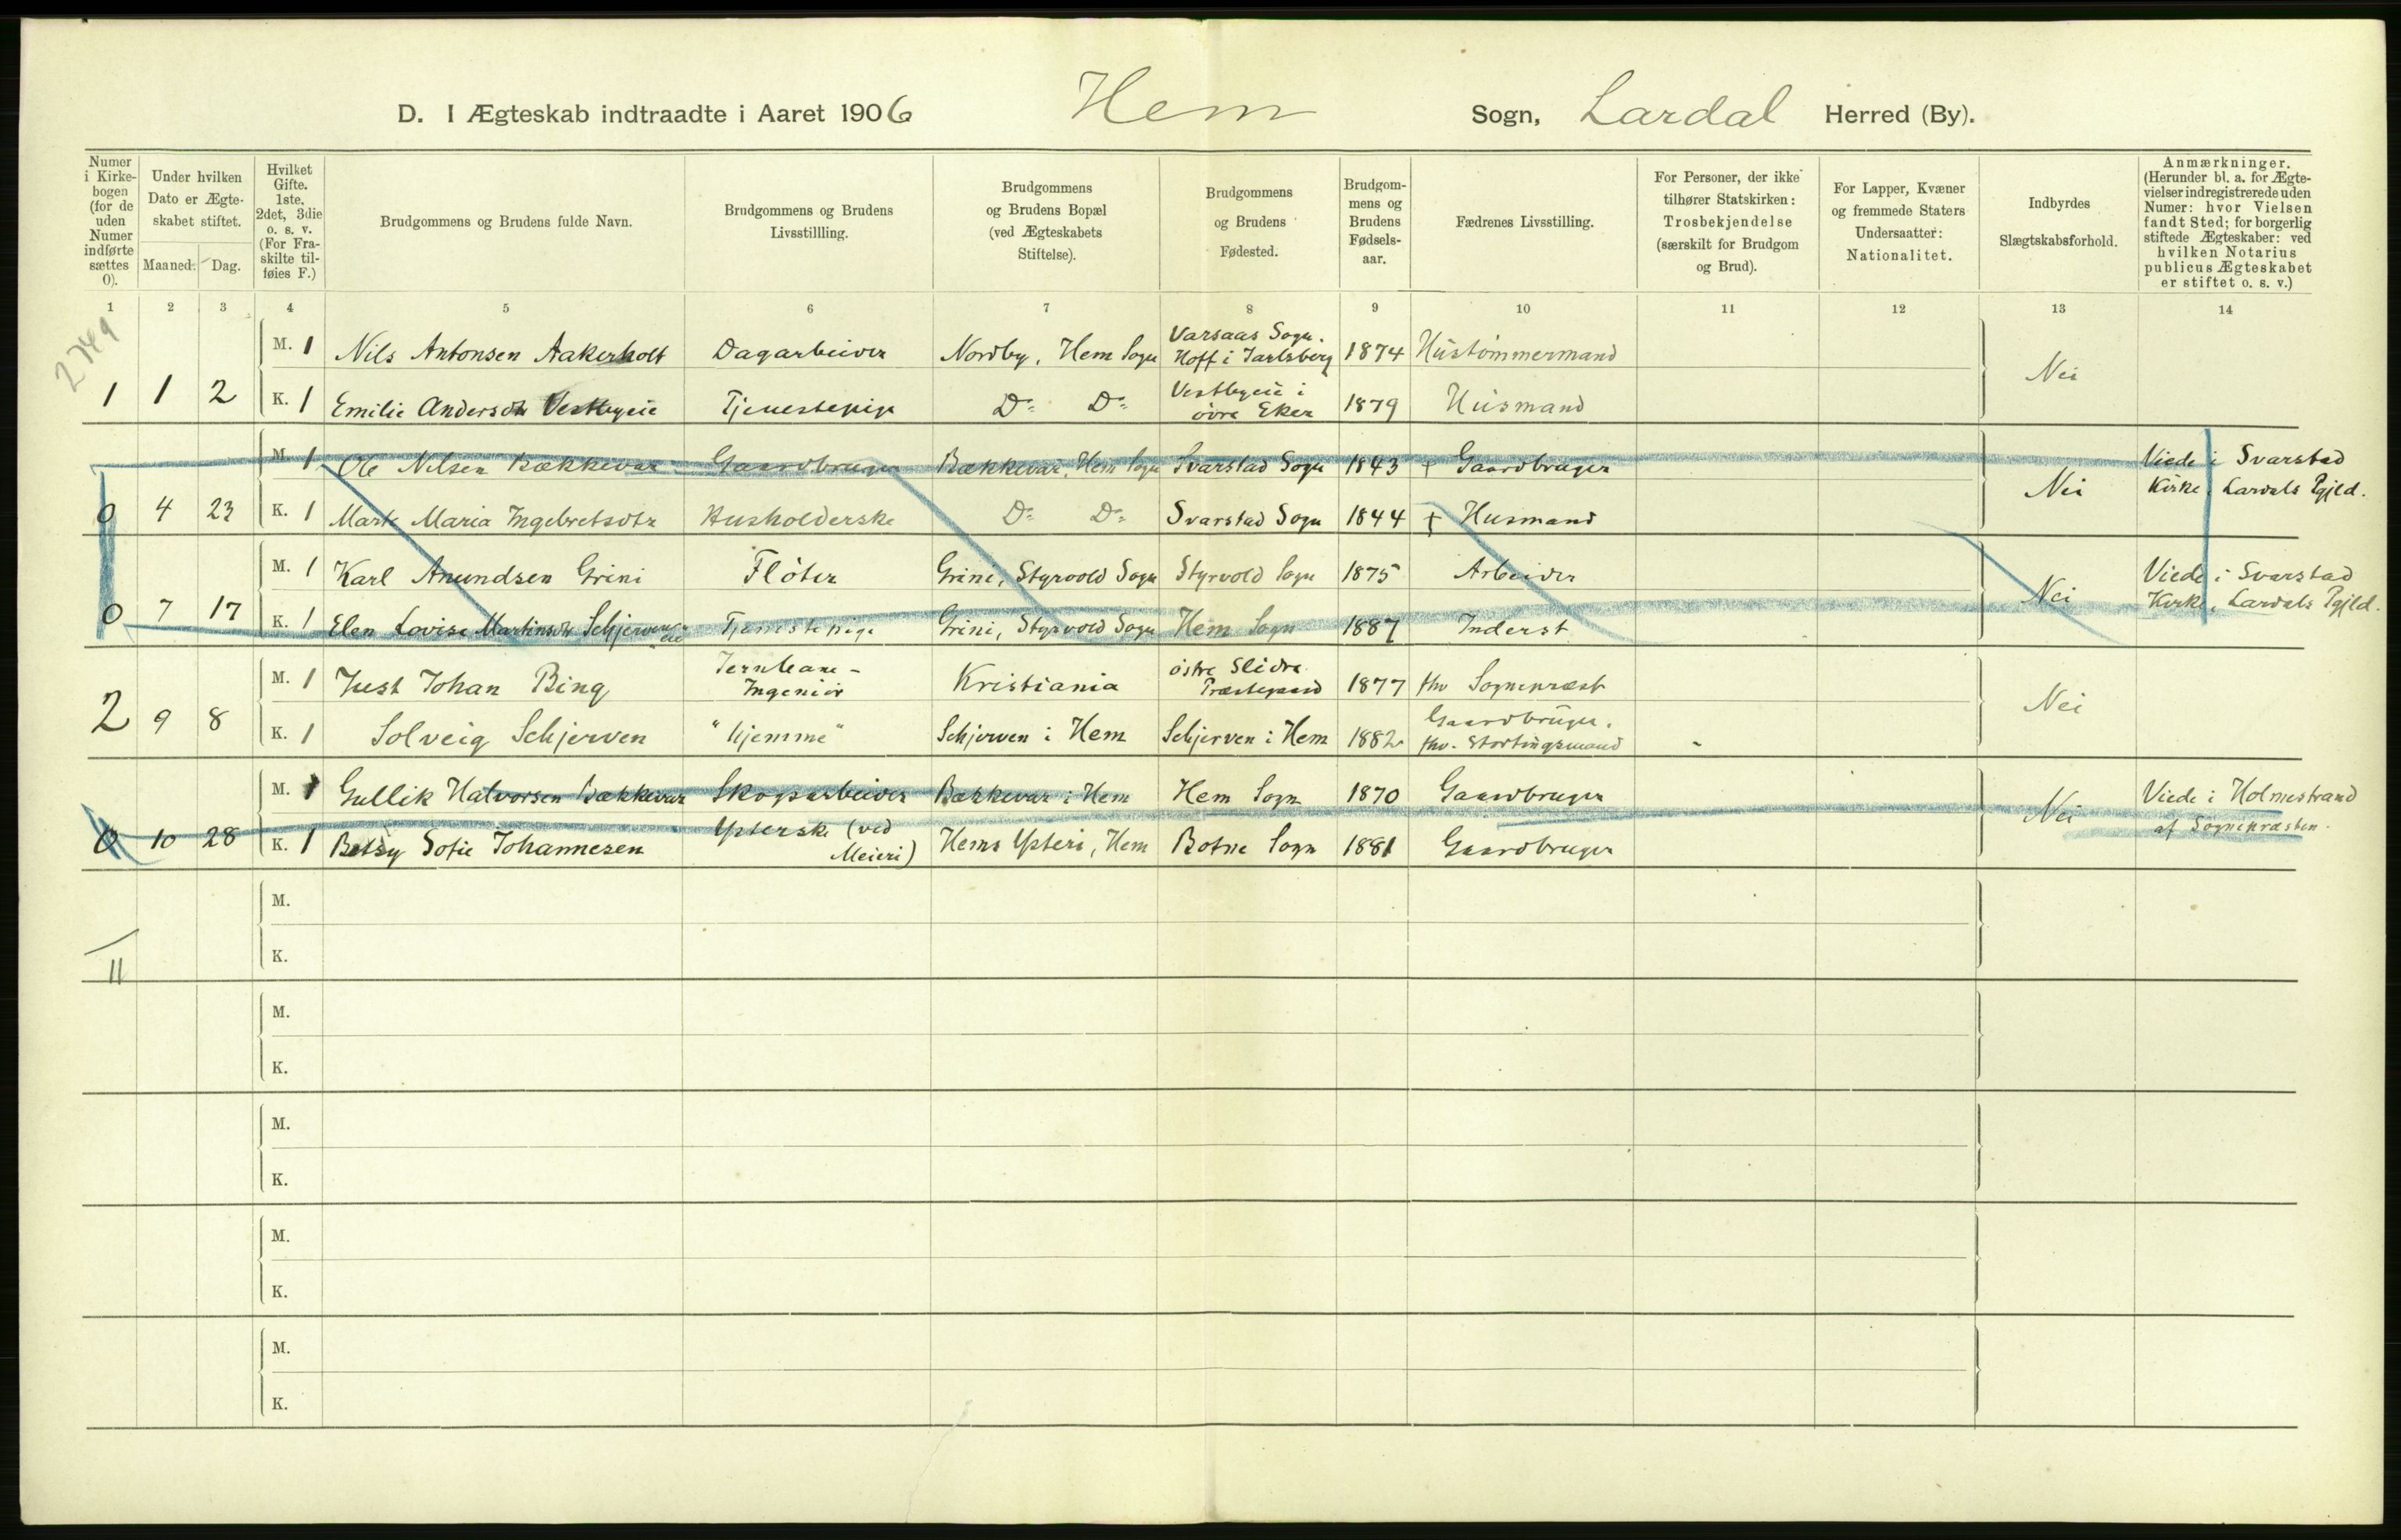 D. I Ægteskab indtraadte i Aaret 1906 Hem Sogn, Lardal Herred (By).
Numer i Kirke-bogen (for de uden Numer indførte sættes 0).
Under hvilken Dato er Ægte-skabet stiftet.
Maaned. Dag.
Hvilket Gifte. 1ste, 2det, 3die o. s. v. (For Fra-skilte til-føies F.)
Brudgommens og Brudens fulde Navn.
Brudgommens og Brudens Livsstillling.
Brudgommens og Brudens Bopæl (ved Ægteskabets Stiftelse).
Brudgommens og Brudens Fødested.
Brudgom-mens og Brudens Fødsels-aar.
Fædrenes Livsstilling.
For Personer, der ikke tilhører Statskirken: Trosbekjendelse (særskilt for Brudgom og Brud).
For Lapper, Kvæner og fremmede Staters Undersaatter: Nationalitet.
Indbyrdes Slægtskabsforhold.
Anmærkninger. (Herunder bl. a. for Ægte-vielser indregistrerede uden Numer: hvor Vielsen fandt Sted; for borgerlig stiftede Ægteskaber: ved hvilken Notarius publicus Ægteskabet er stiftet o. s. v.)
1 2 3 4 5 6 7 8 9 10 11 12 13 14
2749
M. 1 Nils Antonsen Aakerholt Dagarbeider Nordby, Hem Sogn Varsaas Sogn. Hoff i Jarlsberg 1874 Hüstømmermand
1 1 2 K. 1 Emilie Andersdtr Vestbyeie Tjenestepige Do Do Vestbyeie i øvre Eker 1879 Hüsmand Nei
M. 1 Ole Nilsen Bækkevar Gaardbruger Bækkevar, Hem Sogn Svarstad Sogn 1843 + Gaardbruger Viede i Svarstad
0 4 23 K. 1 Marte Maria Ingebretsdtr Husholderske Do Do Svarstad Sogn 1844 + Husmand Nei Kirke, Lardals Pgjld.
M. 1 Karl Amundsen Grini Fløter Grini, Styrvold Sogn Styrvold Sogn 1875 Arbeider Viede i Svarstad
0 7 17 K. 1 Elen Lovise Martinsdtr Schjerven eie Tjenestepige Grini, Styrvold Sogn Hem Sogn 1887 Inderst Nei Kirke, Lardals Pgjld.
M. 1 Just Johan Bing Jernbane-Ingeniør Kristiania østre Slidre Præstegaard 1877 fhv Sogneprest
2 9 8 K. 1 Solveig Schjerven "hjemme" Schjerven i Hem Schjerven i Hem 1882 Gaardbrüger. fhv. Stortingsmand Nei
M. 1 Gullik Halvorsen Bækkevar Skogsarbeider Bækkevar i Hem Hem Sogn 1870 Gaardbruger Viede i Holmestrand
0 10 28 K. 1 Betsy Sofie Johannesen Ysterske (ved Meieri) Hems Ysteri, Hem Botne Sogn 1881 Gaardbruger Nei af Sognepræsten.
M.
K.
11
M.
K.
M.
K.
M.
K.
M.
K.